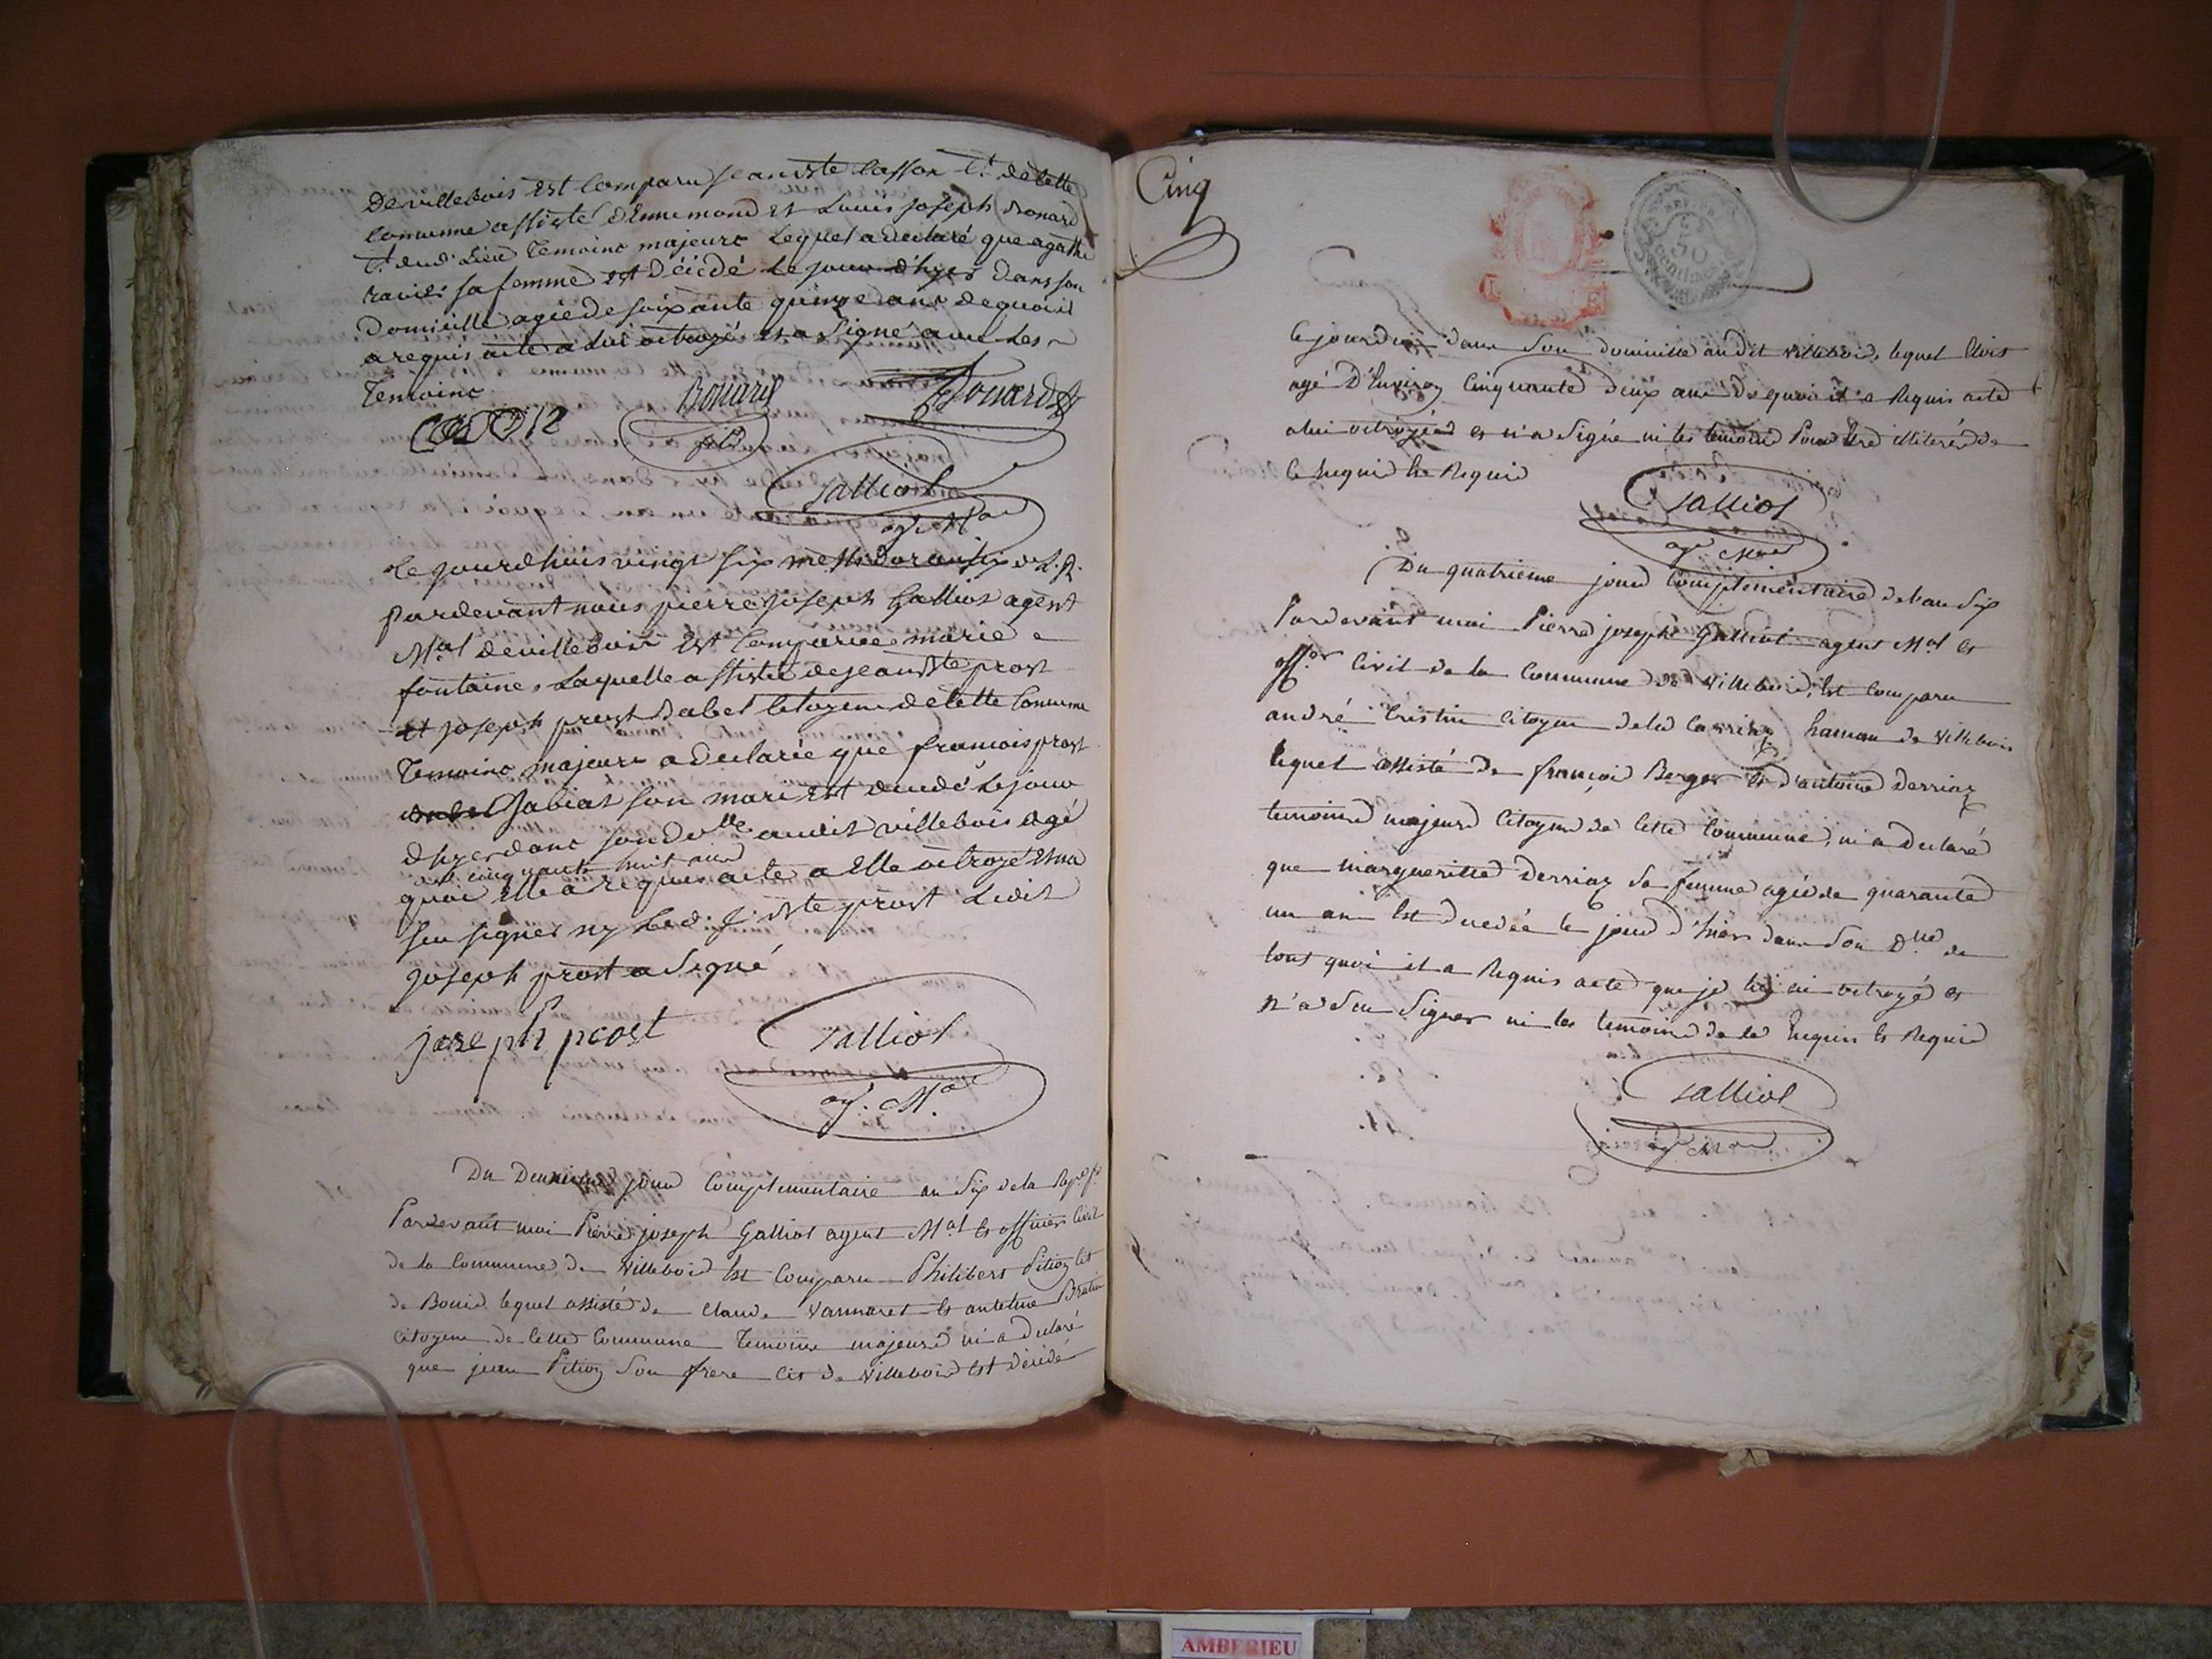 De villebois est Comparu jean bte Casson Ct. de cette
Commune assisté d'Ennemond et Louis joseph Bonard
Ct. dud. Lieu Temoins majeurs Lequel a Declaré que agathe
sa femme est Décédé le jour d'hyer dans son
Domicille agée de soixante quinze ans de quoi il
a requis acte a Lui octroyé et a Signé avec Les
Temoins
Bonard
Bonard
fils
Galliot
agt. Mal
Ce jourdhuis vingt six messidor an six de L. R.
pardevant nous pierre joseph Galliot agent
Mal de villebois est Comparuee marie
fontaine, Laquelle assistée de jean bte prost
et joseph prost Babet Citoyens de cette Commune
Temoins majeurs a declarée que francois prost
Sabiat son mari est decedé le jour
dhyer dans son dlle audit villebois agé
de cinquante huit ans
quoi elle a requis acte a Elle octroyé et na
seu signer ny Led. j. bte prost Ledit
joseph prost a Signé
joseph prost
Galliot
agt. Mal
Du Deuxieme jour Complementaire an Six de la Repe fse
Pardevant moi Pierre joseph Galliot agent Mal et officier Civil
de la Commune de Villebois Est Comparu Philibert Pitioz Cit
de Bouis lequel assisté de Claude Vannaret et antelme
Citoyens de Cette Commune Temoins majeurs m'a declaré
que jean Pitioz Son frere Cit de Villebois Est décédé
Cinq
50
centimes
Ce jourdui dans Son domicille audit Villebois, lequel Etois
agé D'Environ Cinquante deux ans de quoi il a Requis acte
a lui octroyée et n'a Signé ni les temoins Pour Etre illiterés de
Ce Enquis Et Requis
Galliot
agt Mal
Du quatrieme jour Complémentaire de l'an Six
Pardevant moi Pierre joseph Galliot agent Mal et
offer Civil de la Commune de Villebois, Est Comparu
andré Cristin Citoyen de hameau de Villebois
lequel assisté de françois Berger et d'antoine Derriaz
temoins majeurs Citoyens de Cette Commune, m'a declaré
que margueritte Derriaz Sa femme agée de quarante
un an Est decedée le jour d'hier dans Son Dlle de
tout quoi il a Requis acte que je lui ai octroyé et
n'a Seu Signer ni les temoins de ce Enquis Et Requis
Galliot
agt Mal
AMBERIEU